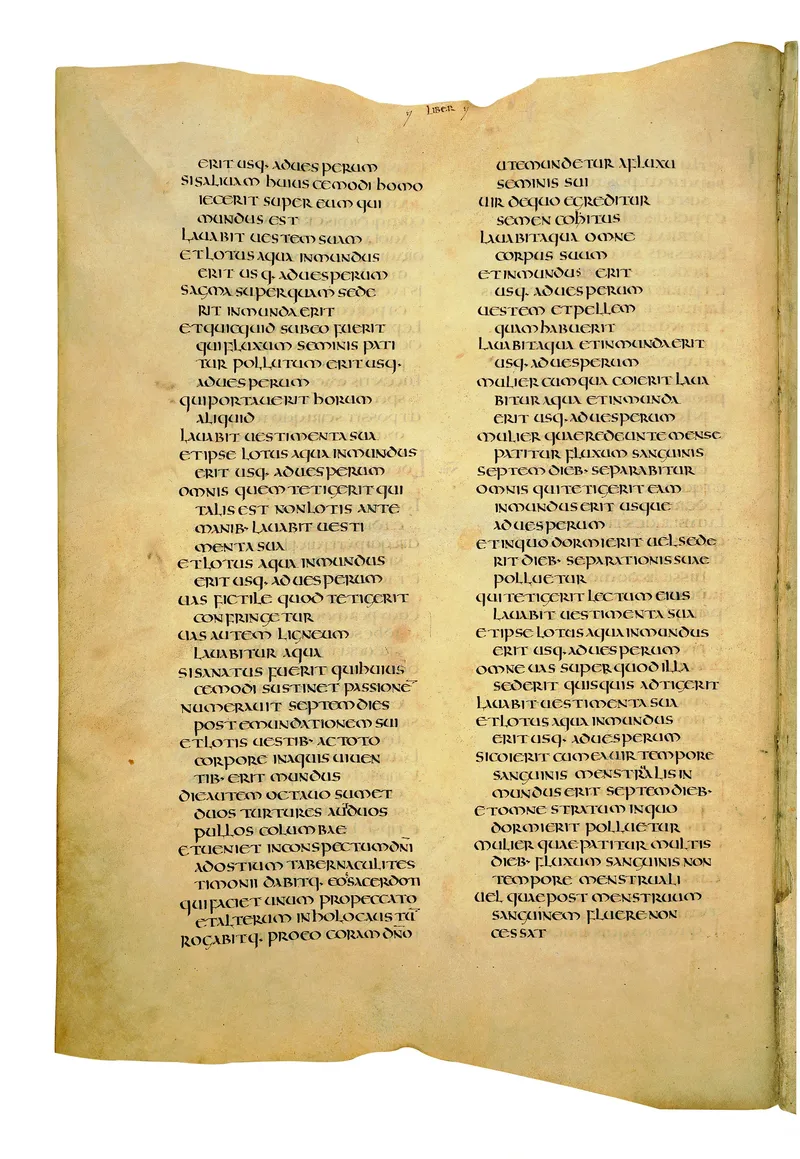 LIBER
ERIT USQ· ADUESPERUM
SISALIUAM HUIUSCEMODI HOMO
IECERIT SUPER EUM QUI
MUNDUS EST
LAUABIT UESTEM SUAM
ETLOTUS AQUA INMUNDUS
ERIT USQ· ADUESPERUM
SAGMA SUPERQUAM SEDE
RIT INMUNDA ERIT
ETQUICQUID SUBEO FUERIT
QUI FLUXUM SEMINIS PATI
TUR POLLUTUM ERIT USQ·
ADUESPERUM
QUIPORTAUERIT HORUM
ALIQUID
LAUABIT UESTIMENTA SUA
ETIPSE LOTUS AQUA INMUNDUS
ERIT USQ· ADUESPERUM
OMNIS QUEM TETIGERIT QUI
TALIS EST NONLOTIS ANTE
MANIB· LAUABIT UESTI
MENTA SUA
ETLOTUS AQUA INMUNDUS
ERIT USQ· ADUESPERUM
UAS FICTILE QUOD TETIGERIT
CONFRINGETUR
UAS AUTEM LIGNEUM
LAUABITUR AQUA
SISANATUS FUERIT QUIHUIUS
CEMODI SUSTINET PASSIONĒ
NUMERAUIT SEPTEM DIES
POST EMUNDATIONEM SUI
ETLOTIS UESTIB· ACTOTO
CORPORE INAQUIS UIUEN
TIB· ERIT MUNDUS
DIEAUTEM OCTAUO SUMET
DUOS TURTURES AUT DUOS
PULLOS COLUMBAE
ETUENIET INCONSPECTUM DN̄I
ADOSTIUM TABERNACULI TES
TIMONII DABITQ· EOS SACERDOTI
QUIFACIET UNUM PROPECCATO
ETALTERUM INHOLOCAUSTŪ
ROGABITQ· PROEO CORAM DN̄O
UTEMUNDETUR AFLUXU
SEMINIS SUI
UIR DEQUO EGREDITUR
SEMEN COHITUS
LAUABITAQUA OMNE
CORPUS SUUM
ETINMUNDUS ERIT
USQ· ADUESPERUM
UESTEM ETPELLEM
QUAM HABUERIT
LAUABITAQUA ETINMUNDA ERIT
USQ· ADUESPERUM
MULIER CUMQUA COIERIT LAUA
BITUR AQUA ETINMUNDA
ERIT USQ· ADUESPERUM
MULIER QUAEREDEUNTE MENSE
PATITUR FLUXUM SANGUINIS
SEPTEM DIEB· SEPARABITUR
OMNIS QUITETIGERIT EAM
INMUNDUS ERIT USQUE
ADUESPERUM
ETINQUO DORMIERIT UELSEDE
RIT DIEB· SEPARATIONIS SUAE
POLLUETUR
QUITETIGERIT LECTUM EIUS
LAUABIT UESTIMENTA SUA
ETIPSE LOTUS AQUA INMUNDUS
ERIT USQ· ADUESPERUM
OMNE UAS SUPERQUOD ILLA
SEDERIT QUISQUIS ADTIGERIT
LAUABIT UESTIMENTA SUA
ETLOTUS AQUA INMUNDUS
ERIT USQ· ADUESPERUM
SICOIERIT CUMEA UIR TEMPORE
SANGUINIS MENSTRUALIS IN
MUNDUS ERIT SEPTEM DIEB·
ETOMNE STRATUM INQUO
DORMIERIT POLLUETUR
MULIER QUAEPATITUR MULTIS
DIEB· FLUXUM SANGUINIS NON
TEMPORE MENSTRUALI
UEL QUAEPOST MENSTRUUM
SANGUINEM FLUERE NON
CESSAT